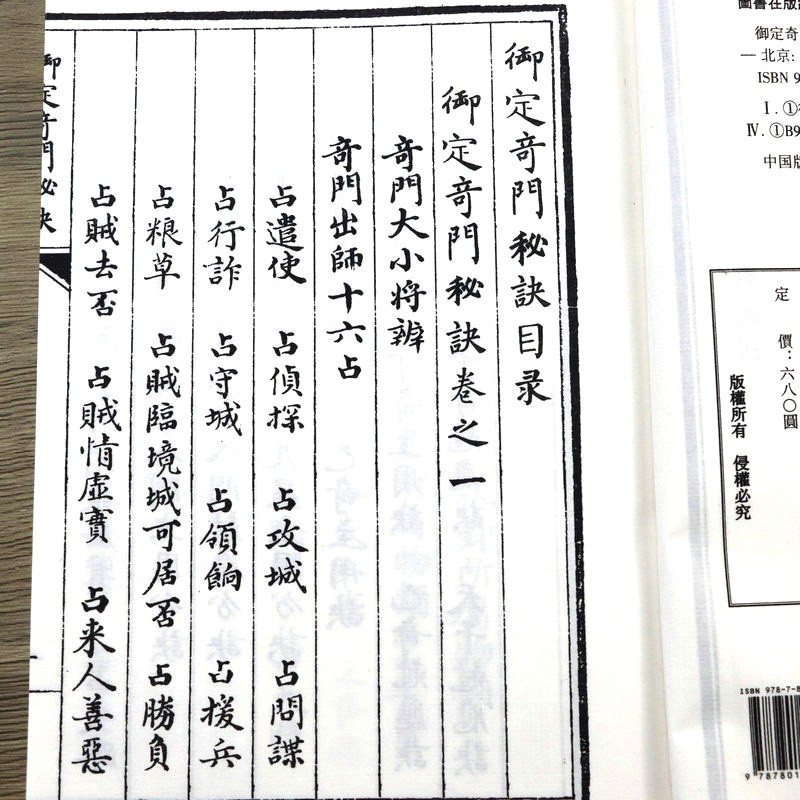 御定奇門秘訣目录
御定奇門秘訣卷之一
奇門大小將辨
奇門出師十六占
占遣使 占偵探 占攻城 占間諜
占行詐 占守城 占領餉 占援兵
占粮草 占賊臨境城可居否 占勝負
占賊去否 占賊情虛實 占来人善惡
御定奇門秘訣
御定奇
一北京:
ISBN 9
Ⅰ.①
Ⅳ.①B9
中国版
定
價：六八〇圓
版權所有 侵權必究
ISBN 978-7-8
9 787801